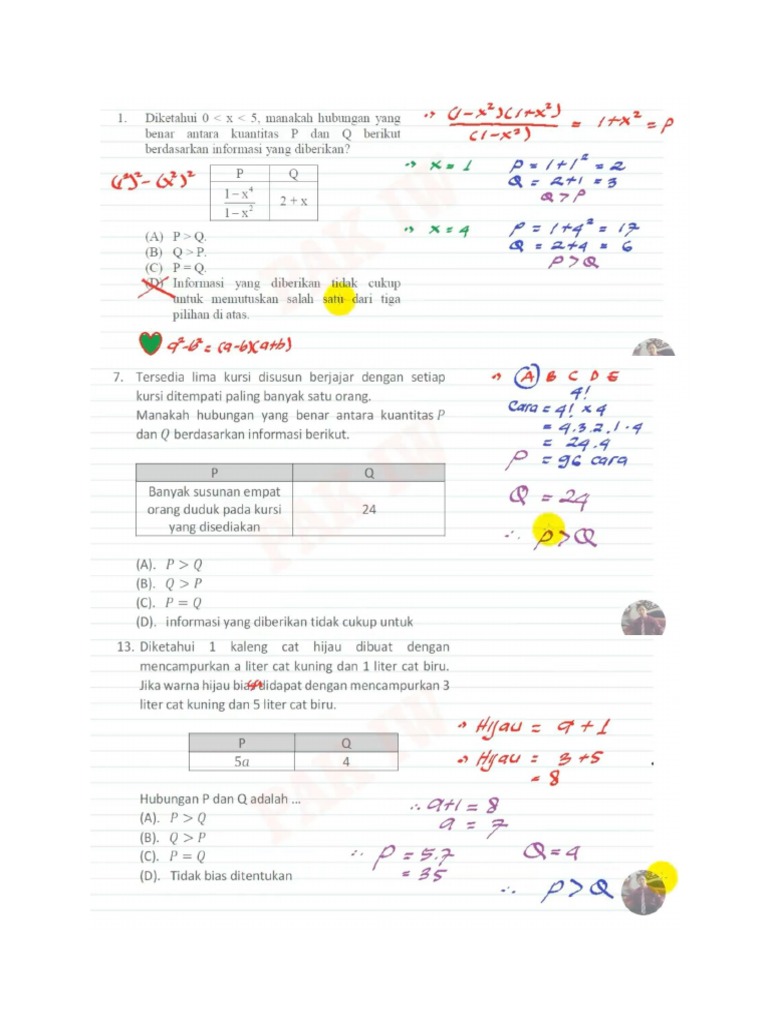 1. Diketahui 0 < x < 5, manakah hubungan yang
benar antara kuantitas P dan Q berikut
berdasarkan informasi yang diberikan?
P Q
1 – x⁴ / 1 – x² 2 + x
(A) P > Q.
(B) Q > P.
(C) P = Q.
(D) Informasi yang diberikan tidak cukup
untuk memutuskan salah satu dari tiga
pilihan di atas.
(1²)² - (x²)²
a² - b² = (a-b)(a+b)
(1-x²)(1+x²) / (1-x²) = 1+x² = P
x = 1 P = 1+1² = 2
Q = 2+1 = 3
Q > P
x = 4 P = 1+4² = 17
Q = 2+4 = 6
P > Q
PAK IW
7. Tersedia lima kursi disusun berjajar dengan setiap
kursi ditempati paling banyak satu orang.
Manakah hubungan yang benar antara kuantitas P
dan Q berdasarkan informasi berikut.
P Q
Banyak susunan empat
orang duduk pada kursi 24
yang disediakan
(A). P > Q
(B). Q > P
(C). P = Q
(D). informasi yang diberikan tidak cukup untuk
A B C D E
4!
Cara = 4! x 4
= 4.3.2.1.4
= 24.4
P = 96 cara
Q = 24
∴ P > Q
PAK IW
13. Diketahui 1 kaleng cat hijau dibuat dengan
mencampurkan a liter cat kuning dan 1 liter cat biru.
Jika warna hijau didapat dengan mencampurkan 3
liter cat kuning dan 5 liter cat biru.
P Q
5a 4
Hubungan P dan Q adalah ...
(A). P > Q
(B). Q > P
(C). P = Q
(D). Tidak bias ditentukan
Hijau = a + 1
Hijau = 3 + 5
= 8
∴ a+1 = 8
a = 7
∴ P = 5.7 Q = 4
= 35
∴ P > Q
PAK IW